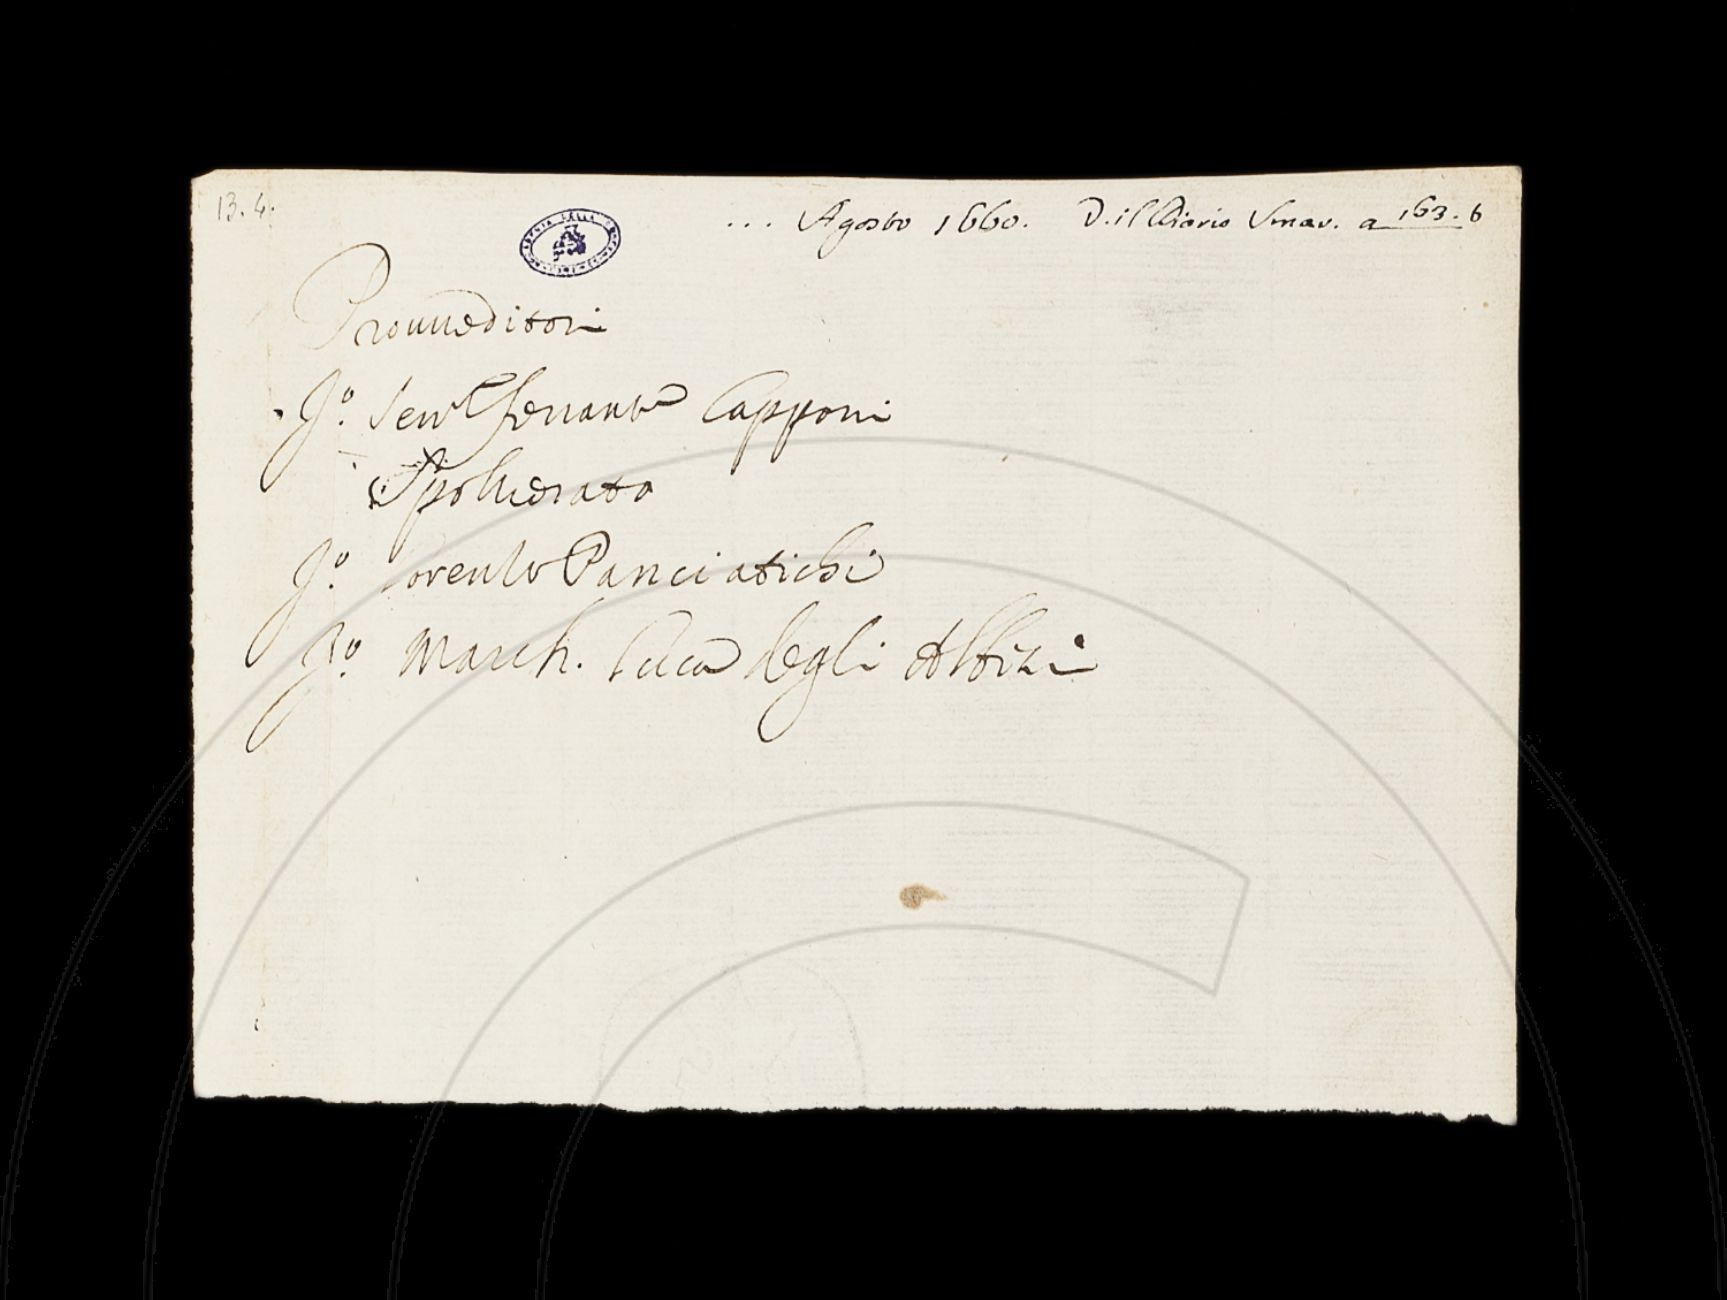 13. 4.
... Agosto 1660. V. il Diario Smar. a 163. 6
Provveditori
Jo. Sen. Ferrante Capponi
Spolverato
Jo. Lorenzo Panciatichi
Jo. March. Luca degli Albizi